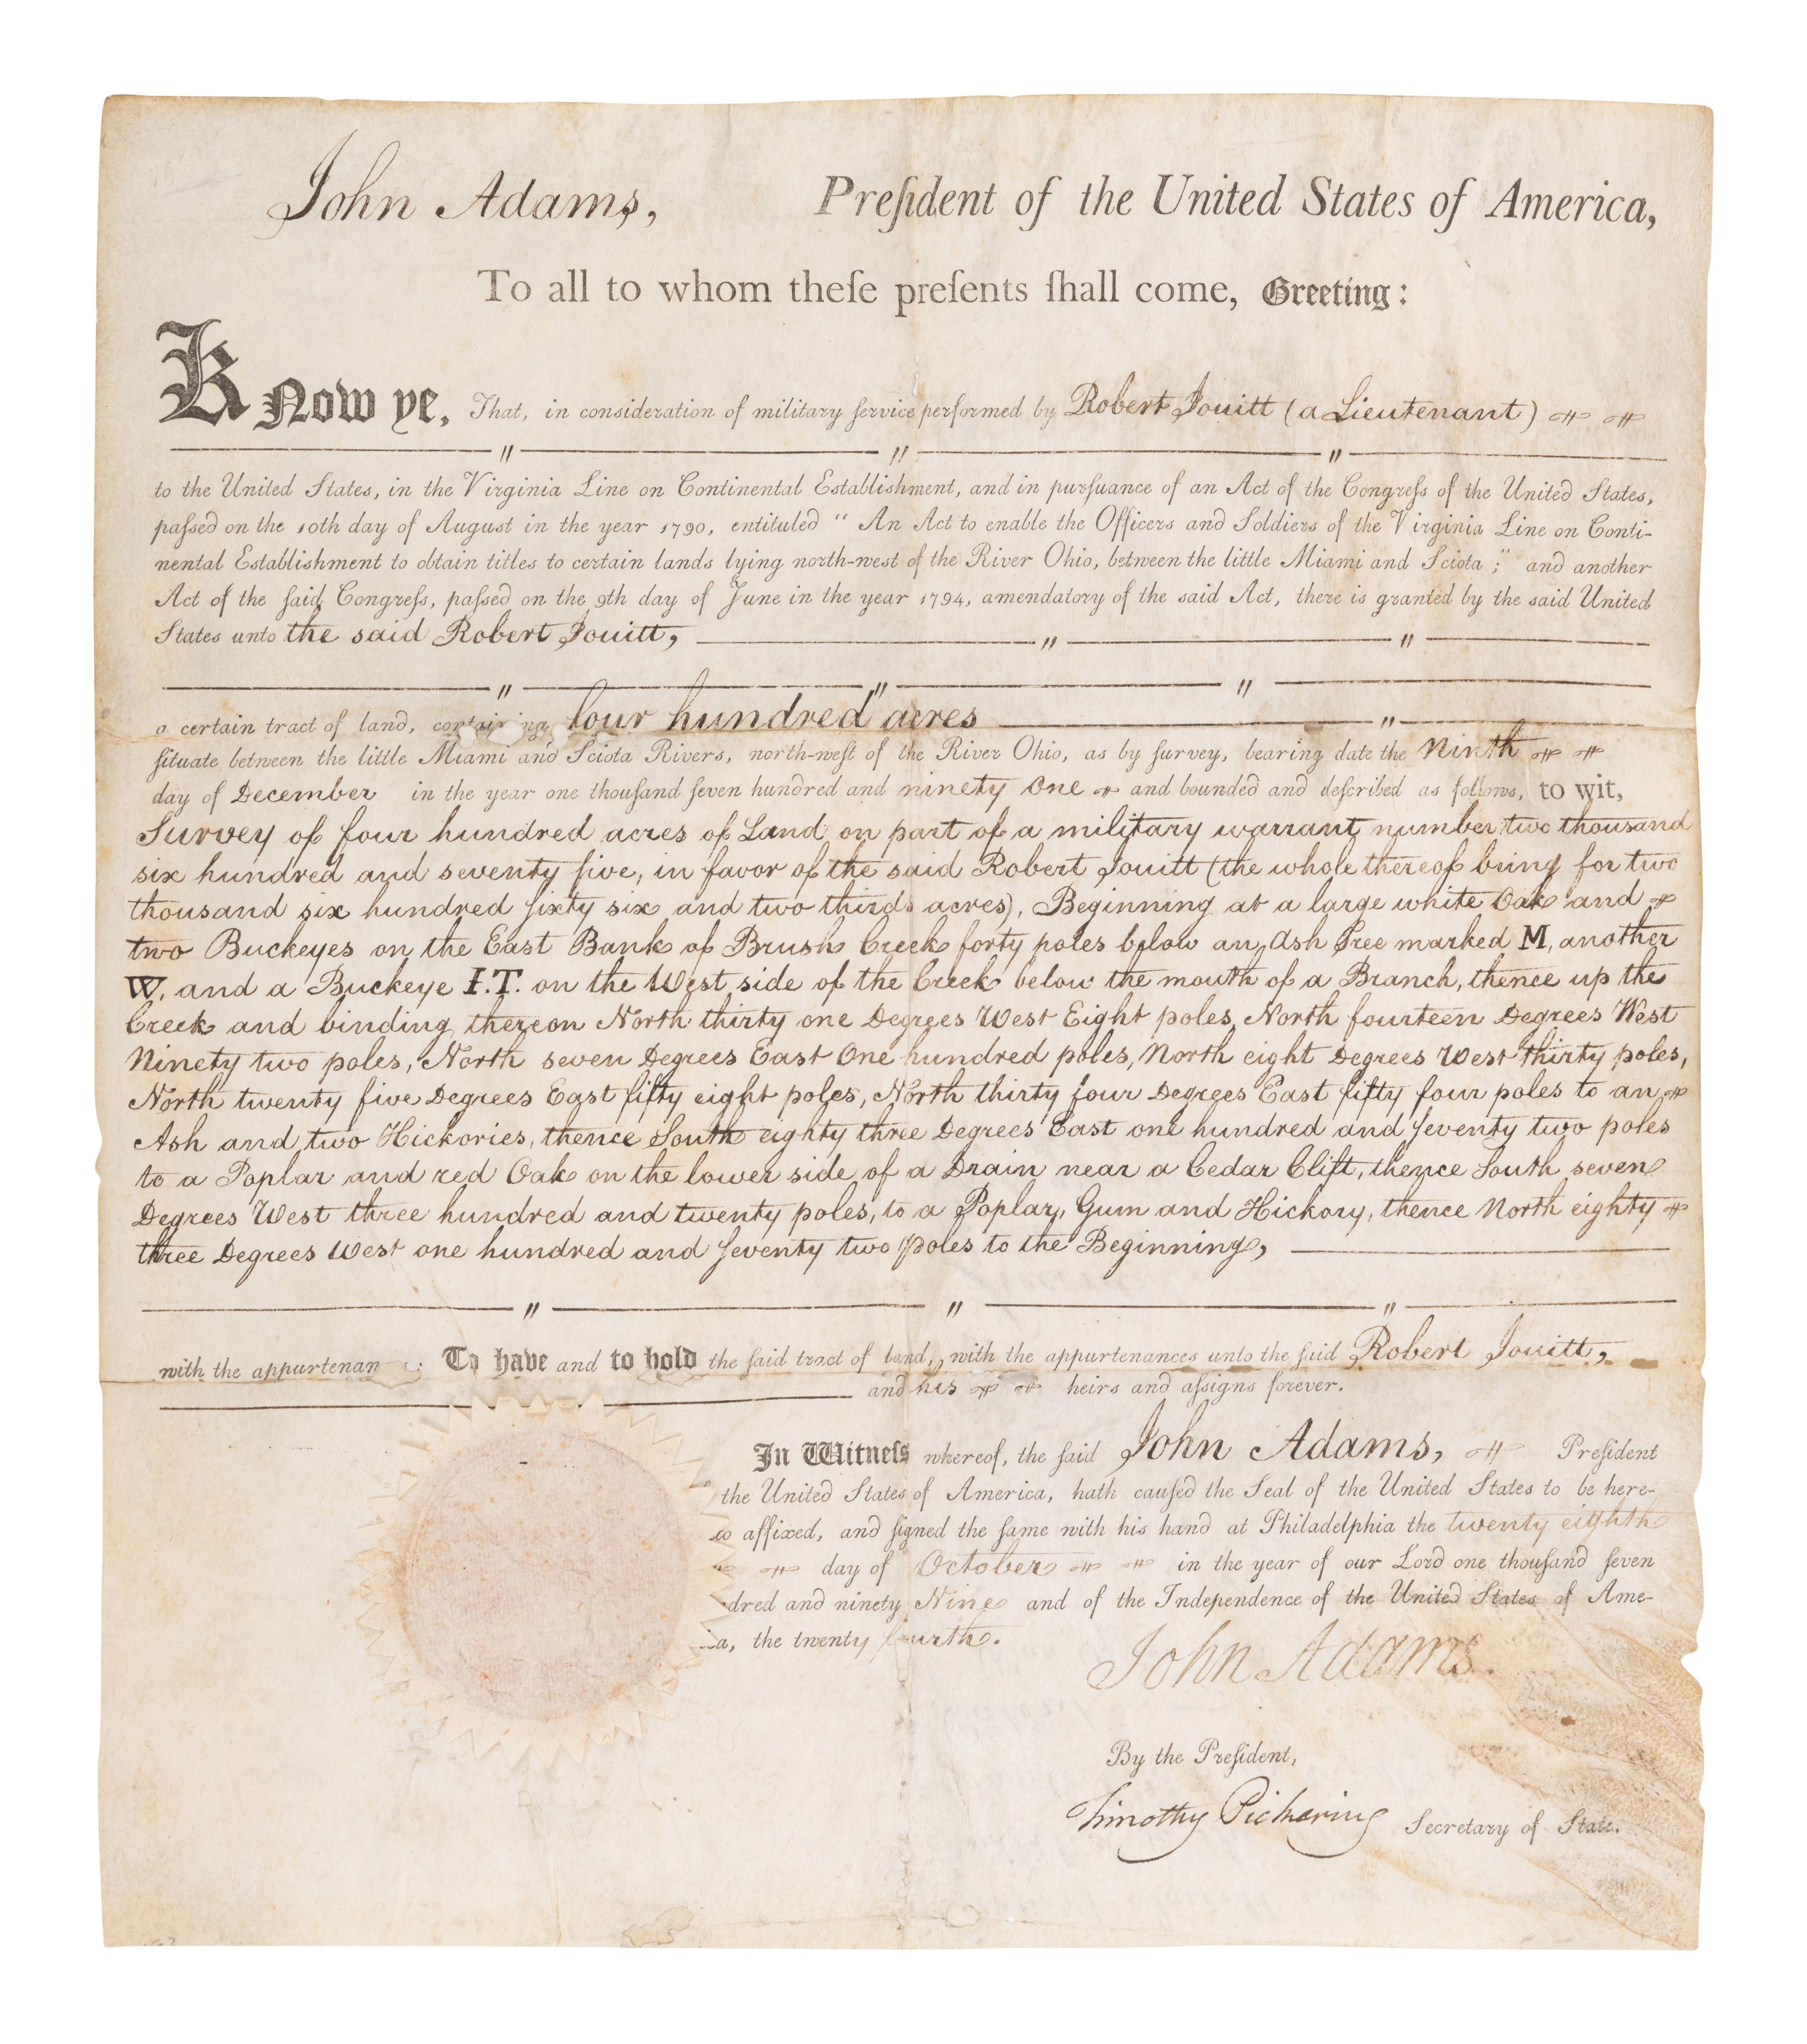 John Adams, Preſident of the United States of America,
To all to whom theſe preſents ſhall come, Greeting:
Know ye, That, in consideration of military ſervice performed by Robert Jouitt (a Lieutenant)
to the United States, in the Virginia Line on Continental Establishment, and in purſuance of an Act of the Congreſs of the United States,
paſſed on the 10th day of August in the year 1790, entituled “ An Act to enable the Officers and Soldiers of the Virginia Line on Conti-
nental Establishment to obtain titles to certain lands lying north-west of the River Ohio, between the little Miami and Sciota ;” and another
Act of the ſaid Congreſs, paſſed on the 9th day of June in the year 1794, amendatory of the said Act, there is granted by the said United
States unto the said Robert Jouitt,
a certain tract of land, containing four hundred acres
ſituate between the little Miami and Sciota Rivers, north-weſt of the River Ohio, as by ſurvey, bearing date the Ninth
day of December in the year one thouſand ſeven hundred and ninety one and bounded and deſcribed as follows, to wit,
Survey of four hundred acres of Land on part of a military warrant number two thousand
six hundred and seventy five, in favor of the said Robert Jouitt (the whole thereof being for two
thousand six hundred sixty six and two thirds acres), Beginning at a large white Oak and
two Buckeyes on the East Bank of Brush Creek forty poles below an Ash Tree marked M, another
W. and a Buckeye I.T. on the West side of the Creek below the mouth of a Branch, thence up the
Creek and binding thereon North thirty one Degrees West Eight poles, North fourteen Degrees West
Ninety two poles, North seven Degrees East One hundred poles, North eight Degrees West thirty poles,
North twenty five Degrees East fifty eight poles, North thirty four Degrees East fifty four poles to an
Ash and two Hickories, thence South eighty three Degrees East one hundred and seventy two poles
to a Poplar and red Oak on the lower side of a Drain near a Cedar Clift, thence South seven
Degrees West three hundred and twenty poles, to a Poplar, Gum and Hickory, thence North eighty
three Degrees West one hundred and seventy two poles to the Beginning,
with the appurtenan To have and to hold the ſaid tract of land, with the appurtenances unto the ſaid Robert Jouitt,
and his heirs and aſſigns forever.
In Witneſs whereof, the ſaid John Adams, Preſident
the United States of America, hath cauſed the Seal of the United States to be here-
to affixed, and ſigned the ſame with his hand at Philadelphia the twenty eighth
day of October in the year of our Lord one thouſand ſeven
dred and ninety Nine and of the Independence of the United States of Ame-
ica, the twenty fourth.
John Adams.
By the Preſident,
Timothy Pickering Secretary of State.